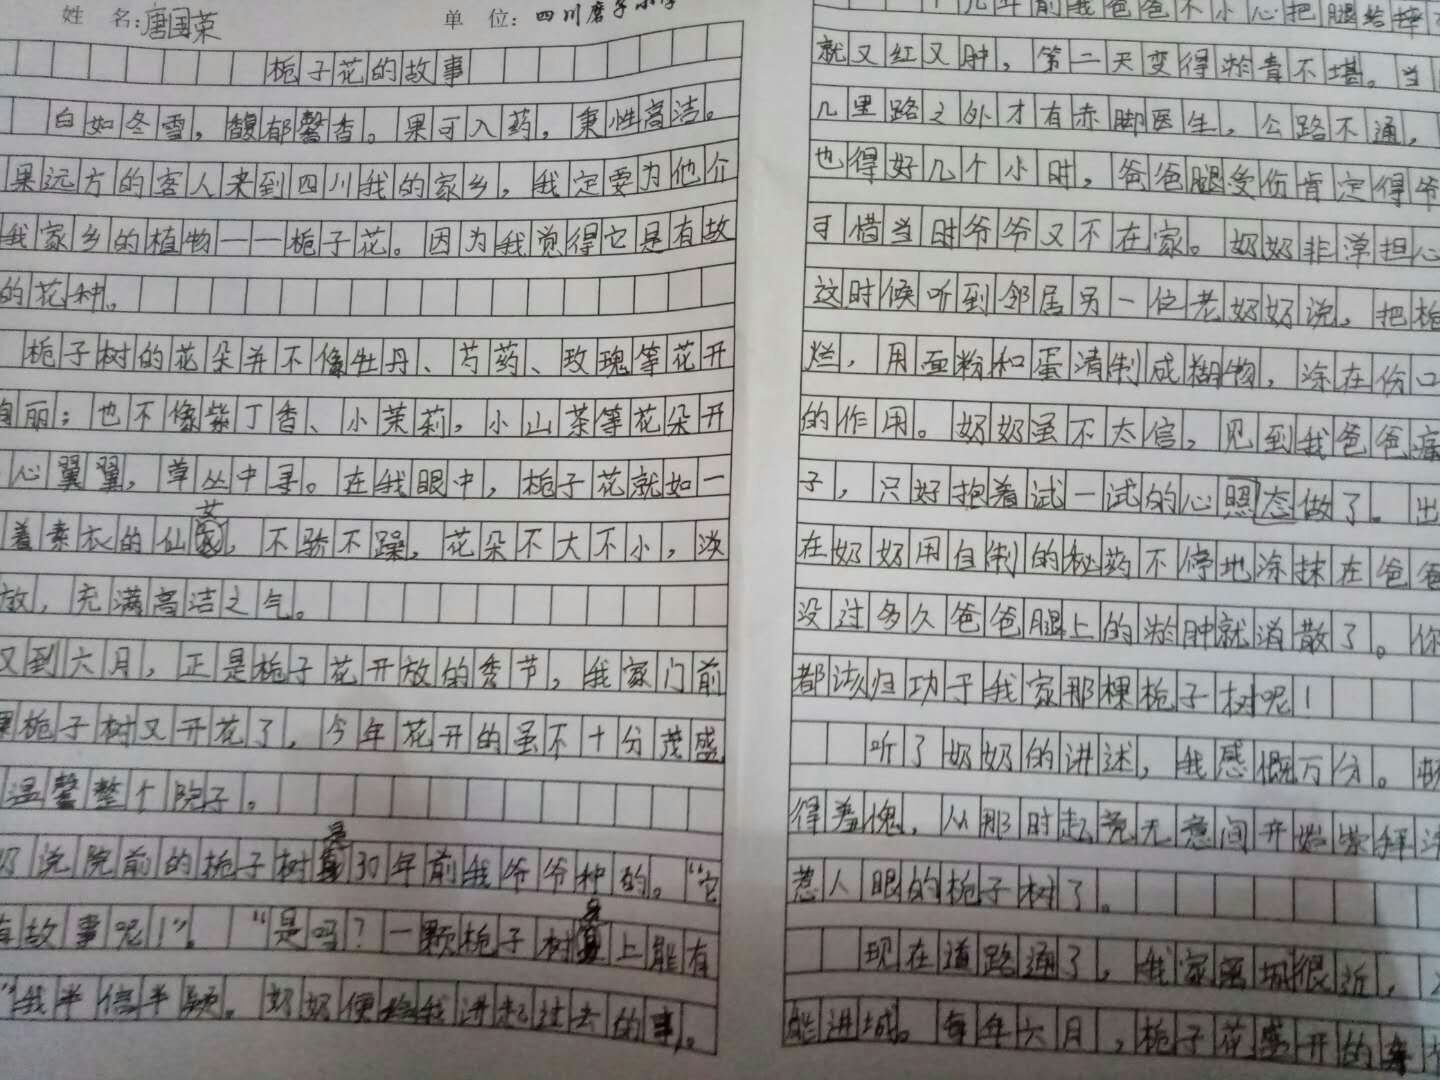 姓 名:唐国荣
单 位:四川磨子小学
栀子花的故事
白如冬雪，馥郁馨香。果可入药，秉性高洁。
果远方的客人来到四川我的家乡，我定要为他介
我家乡的植物——栀子花。因为我觉得它是有故
的花种。
栀子树的花朵并不像牡丹、芍药、玫瑰等花开
丽；也不像紫丁香、小茉莉，小山茶等花朵开
心翼翼，草丛中寻。在我眼中，栀子花就如一
着素衣的仙女，不骄不躁，花朵不大不小，淡
放，充满高洁之气。
又到六月，正是栀子花开放的季节，我家门前
栀子树又开花了，今年花开的虽不十分茂盛
温馨整个院子。
奶说院前的栀子树是30年前我爷爷种的。“它
有故事呢！”。“是吗？一颗栀子树身上能有
”我半信半疑。奶奶便给我讲起过去的事。
几年前我爸爸不小心把腿给摔
就又红又肿，第二天变得淤青不堪。当
几里路之外才有赤脚医生，公路不通，
也得好几个小时，爸爸腿受伤肯定得爷
可惜当时爷爷又不在家。奶奶非常担心
这时候听到邻居另一位老奶奶说，把栀
烂，用面粉和蛋清制成糊物，涂在伤口
的作用。奶奶虽不太信，见到我爸爸痛
子，只好抱着试一试的心态做了。出
在奶奶用自制的秘药不停地涂抹在爸爸
没过多久爸爸腿上的淤肿就消散了。你
都该归功于我家那棵栀子树呢！
听了奶奶的讲述，我感慨万分。顿
得羞愧，从那时起竟无意间开始崇拜
惹人眼的栀子树了。
现在道路通了，我家离城很近，
能进城。每年六月，栀子花盛开的季